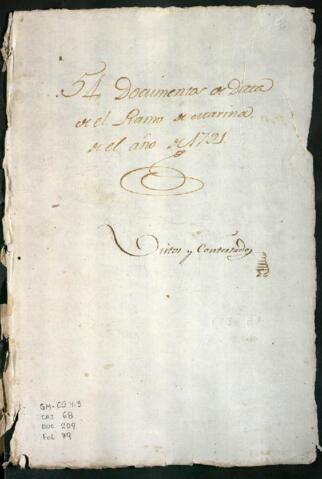 54 Documentos de Data
de el Ramo de Marina
de el año de 1791
Vistos y Confrontados
GM-CO 4.3
CAJ 68
DOC 209
FOL 79